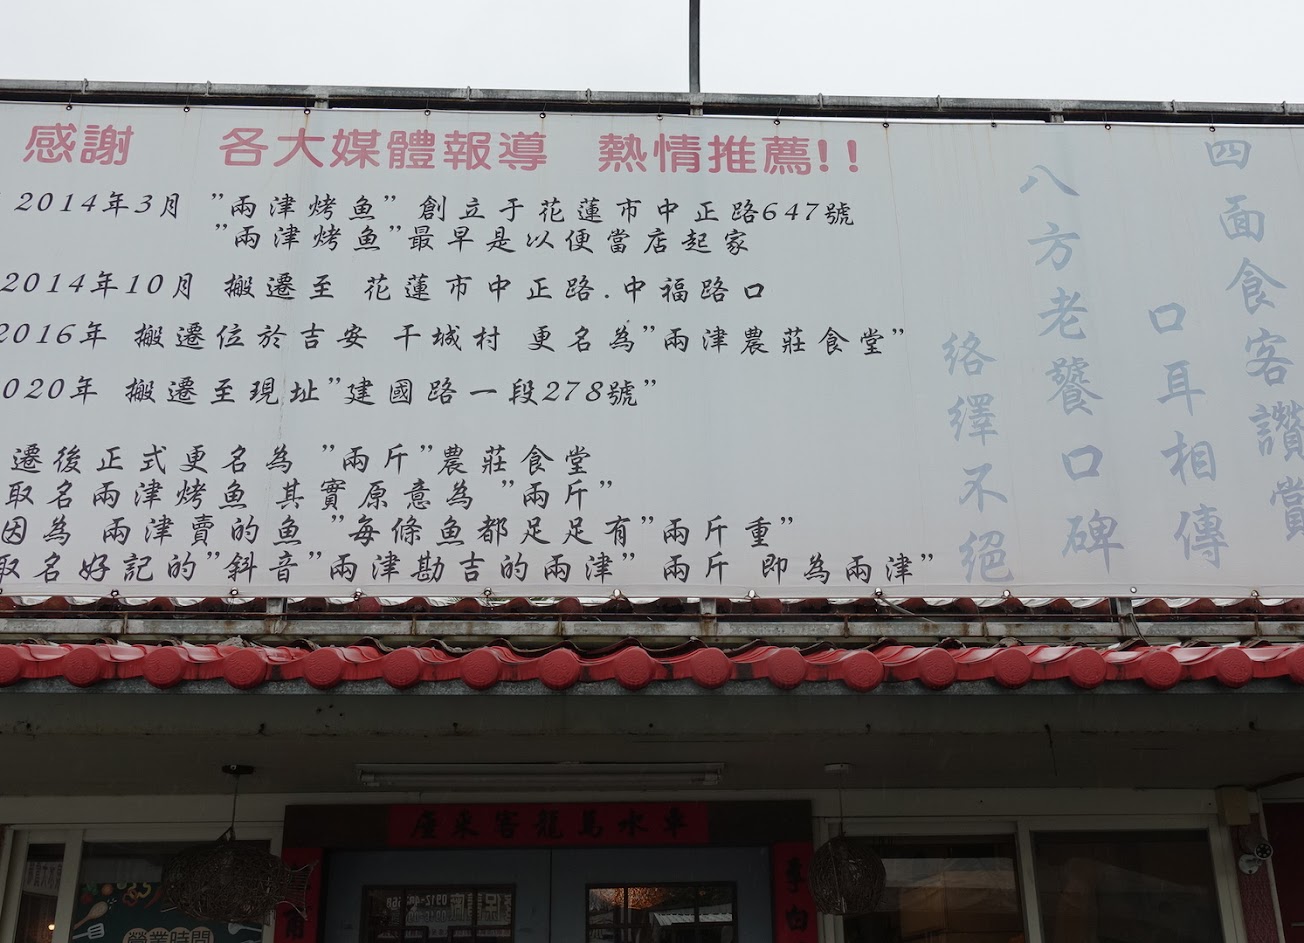 感謝 各大媒體報導 熱情推薦!!
2014年3月 "兩津烤魚" 創立于花蓮市中正路647號
"兩津烤魚"最早是以便當店起家
2014年10月 搬遷至 花蓮市中正路.中福路口
2016年 搬遷位於吉安 干城村 更名為"兩津農莊食堂"
020年 搬遷至現址"建國路一段278號"
遷後正式更名為 "兩斤"農莊食堂
取名兩津烤魚 其實原意為 "兩斤"
因為 兩津賣的魚 "每條魚都足足有"兩斤重"
取名好記的"斜音"兩津勘吉的兩津" 兩斤 即為兩津"
四面食客讚賞
口耳相傳
八方老饕口碑
絡繹不絕
車水馬龍客來座
營業時間